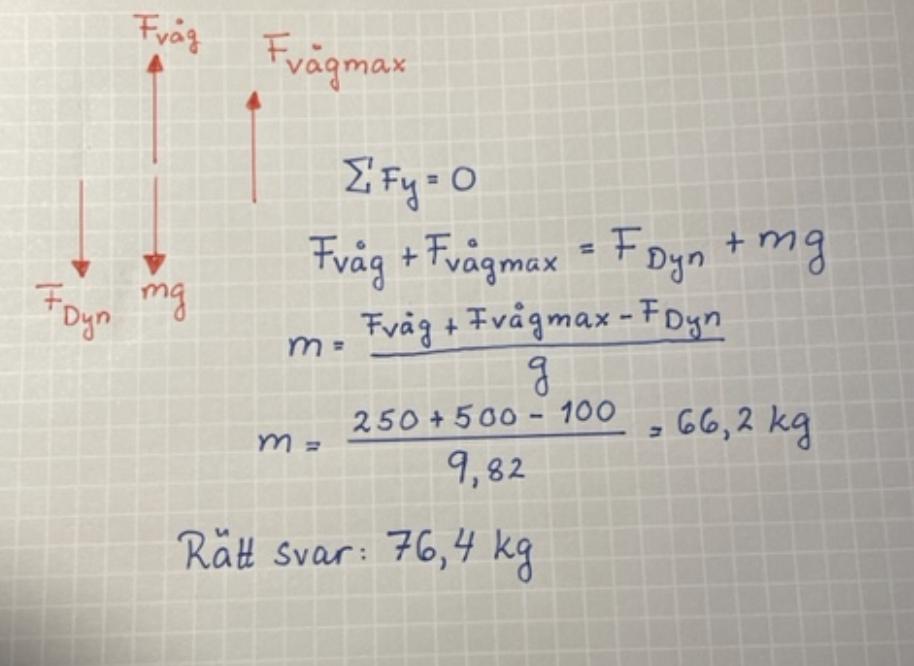 Fvåg
Fvågmax
FDyn
mg
ΣFy = 0
Fvåg + Fvågmax = FDyn + mg
m = (Fvåg + Fvågmax - FDyn) / g
m = (250 + 500 - 100) / 9,82 = 66,2 kg
Rätt svar: 76,4 kg